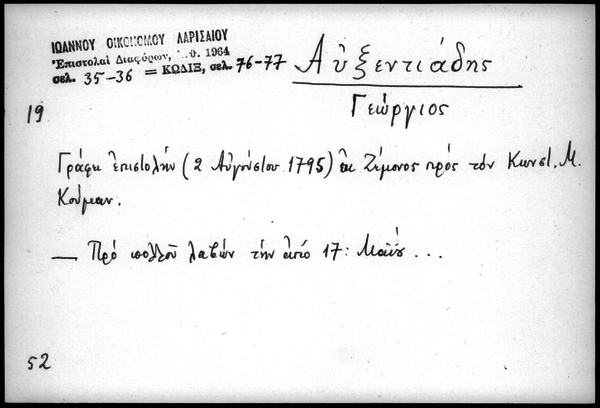 ΙΩΑΝΝΟΥ ΟΙΚΟΝΟΜΟΥ ΛΑΡΙΣΑΙΟΥ
Ἐπιστολαὶ Διαφόρων, 1964
σελ. 35-36 = ΚΩΔΙΞ, σελ. 76-77
Αὐξεντιάδης
Γεώργιος
19
Γράφει ἐπιστολήν (2 Αὐγούστου 1795) ἐκ Ζέμονος πρός τόν Κωνστ. Μ.
Κούμαν.
— Πρό πολλοῦ λαβών τήν ἀπό 17: Μαΐου ...
52